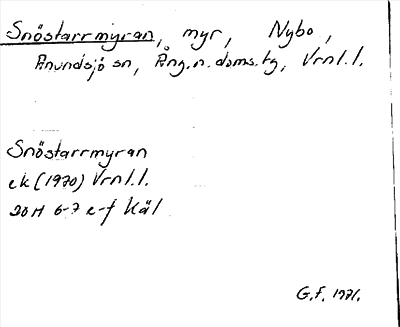 Snöstarrmyran, myr, Nybo,
Anundsjö sn, Ång.n.doms.tg, Vrnl.l.
Snöstarrmyran
ek (1970) Vrnl.l.
20H 6-7 e-f Käl
G.F. 1971.